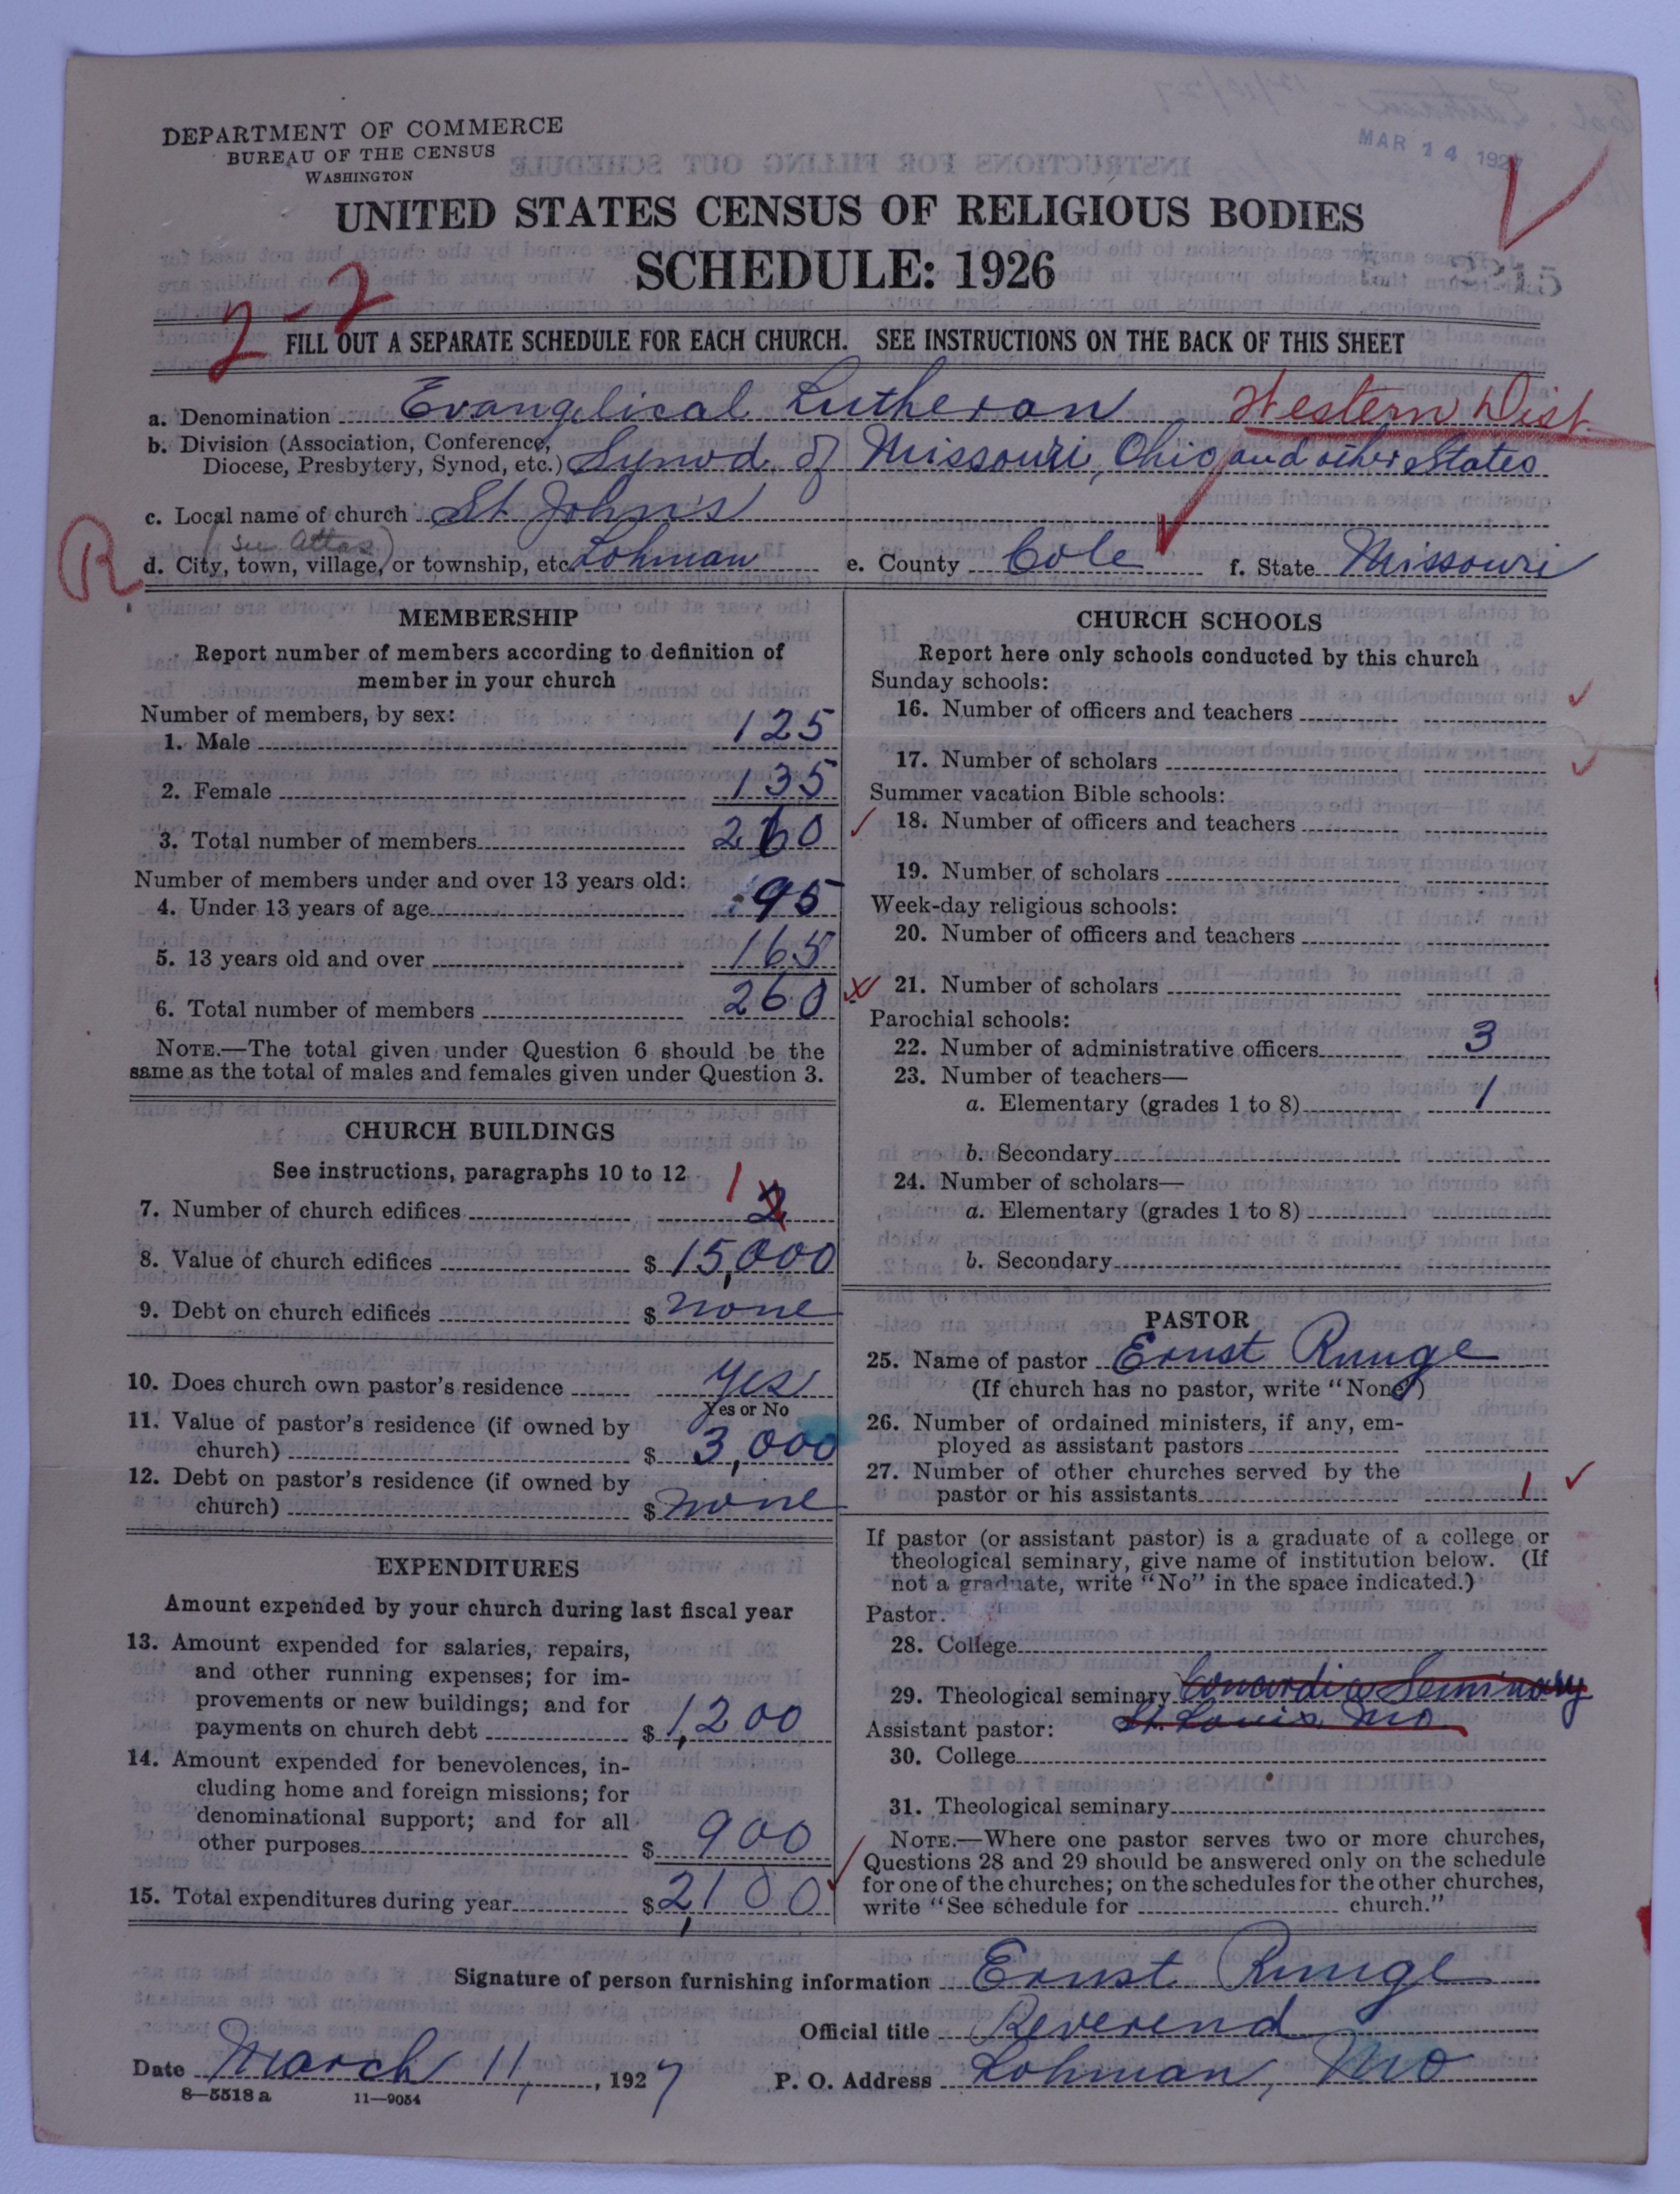 DEPARTMENT OF COMMERCE
BUREAU OF THE CENSUS
WASHINGTON
MAR 14 1927
UNITED STATES CENSUS OF RELIGIOUS BODIES
SCHEDULE: 1926
2-2
FILL OUT A SEPARATE SCHEDULE FOR EACH CHURCH. SEE INSTRUCTIONS ON THE BACK OF THIS SHEET
a. Denomination Evangelical Lutheran Western Dist.
b. Division (Association, Conference,
Diocese, Presbytery, Synod, etc.) Synod of Missouri, Ohio and other States
c. Local name of church St John's
(see Atlas)
R
d. City, town, village, or township, etc. Lohman e. County Cole f. State Missouri
MEMBERSHIP
Report number of members according to definition of
member in your church
Number of members, by sex:
1. Male 125
2. Female 135
3. Total number of members 260
Number of members under and over 13 years old:
4. Under 13 years of age 95
5. 13 years old and over 165
6. Total number of members 260
NOTE.—The total given under Question 6 should be the
same as the total of males and females given under Question 3.
CHURCH BUILDINGS
See instructions, paragraphs 10 to 12
7. Number of church edifices 1 2
8. Value of church edifices $ 15,000
9. Debt on church edifices $ none
10. Does church own pastor's residence Yes
Yes or No
11. Value of pastor's residence (if owned by
church) $ 3,000
12. Debt on pastor's residence (if owned by
church) $ none
EXPENDITURES
Amount expended by your church during last fiscal year
13. Amount expended for salaries, repairs,
and other running expenses; for im-
provements or new buildings; and for
payments on church debt $ 1,200
14. Amount expended for benevolences, in-
cluding home and foreign missions; for
denominational support; and for all
other purposes $ 900
15. Total expenditures during year $ 2,100
CHURCH SCHOOLS
Report here only schools conducted by this church
Sunday schools:
16. Number of officers and teachers
17. Number of scholars
Summer vacation Bible schools:
18. Number of officers and teachers
19. Number of scholars
Week-day religious schools:
20. Number of officers and teachers
21. Number of scholars
Parochial schools:
22. Number of administrative officers 3
23. Number of teachers—
a. Elementary (grades 1 to 8) 1
b. Secondary
24. Number of scholars—
a. Elementary (grades 1 to 8)
b. Secondary
PASTOR
25. Name of pastor Ernst Runge
(If church has no pastor, write "None")
26. Number of ordained ministers, if any, em-
ployed as assistant pastors
27. Number of other churches served by the
pastor or his assistants 1
If pastor (or assistant pastor) is a graduate of a college or
theological seminary, give name of institution below. (If
not a graduate, write "No" in the space indicated.)
Pastor:
28. College
29. Theological seminary Concordia Seminary
St. Louis, Mo
Assistant pastor:
30. College
31. Theological seminary
NOTE.—Where one pastor serves two or more churches,
Questions 28 and 29 should be answered only on the schedule
for one of the churches; on the schedules for the other churches,
write "See schedule for church."
Signature of person furnishing information Ernst Runge
Official title Reverend
Date March 11, 1927 P. O. Address Lohman, Mo
8—5518 a 11—9054